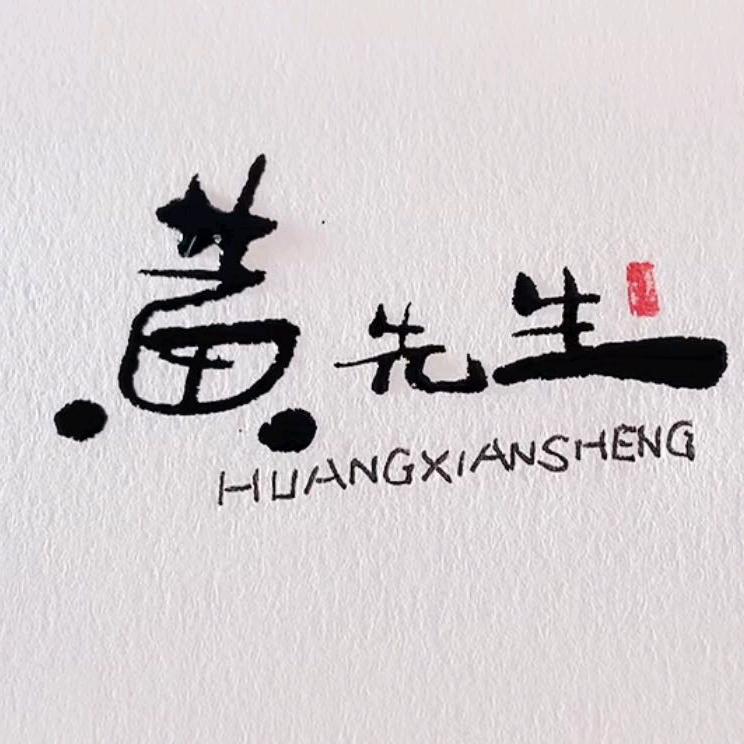 黄先生
HUANGXIANSHENG